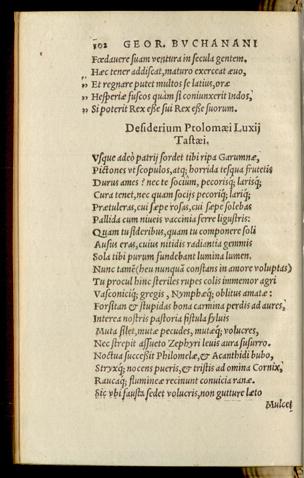 102 GEOR. BVCHANANI
Fœdauere suam ventura in secula gentem.
Hæc tener addiscat, maturo exerceat æuo,
„ Et regnare putet multos se latius, oræ
„ Hesperiæ fuscos quàm si coniunxerit Indos,
„ Si poterit Rex esse sui Rex esse suorum.
Desiderium Ptolomæi Luxij
Tastæi.
Vsque adeò patrij sordet tibi ripa Garumnæ,
Pictones vt scopulos, atq; horrida tesqua frutetis
Durus ames? nec te socium, pecorisq; larisq;
Cura tenet, nec quam socijs pecoriq; lariq;
Prætuleras, cui sæpe rosas, cui sæpe solebas
Pallida cum niueis vaccinia ferre ligustris:
Quam tu sideribus, quam tu componere soli
Ausus eras, cuius nitidis radiantia gemmis
Sola tibi purum fundebant lumina lumen.
Nunc tamē (heu nunquā constans in amore voluptas)
Tu procul hinc steriles rupes colis immemor agri
Vasconiciq; gregis, Nymphæq; oblitus amatæ:
Forsitan & stupidas bona carmina perdis ad aures,
Interea nostris pastoria fistula syluis
Muta silet, mutæ pecudes, mutæq; volucres,
Nec strepit assueto Zephyri leuis aura susurro.
Noctua successit Philomelæ, & Acanthidi bubo,
Stryxq; nocens pueris, & tristis ad omina Cornix,
Raucaq; flumineæ recinunt conuicia ranæ.
Sic vbi fausta sedet volucris, non gutture læto
Mulcet